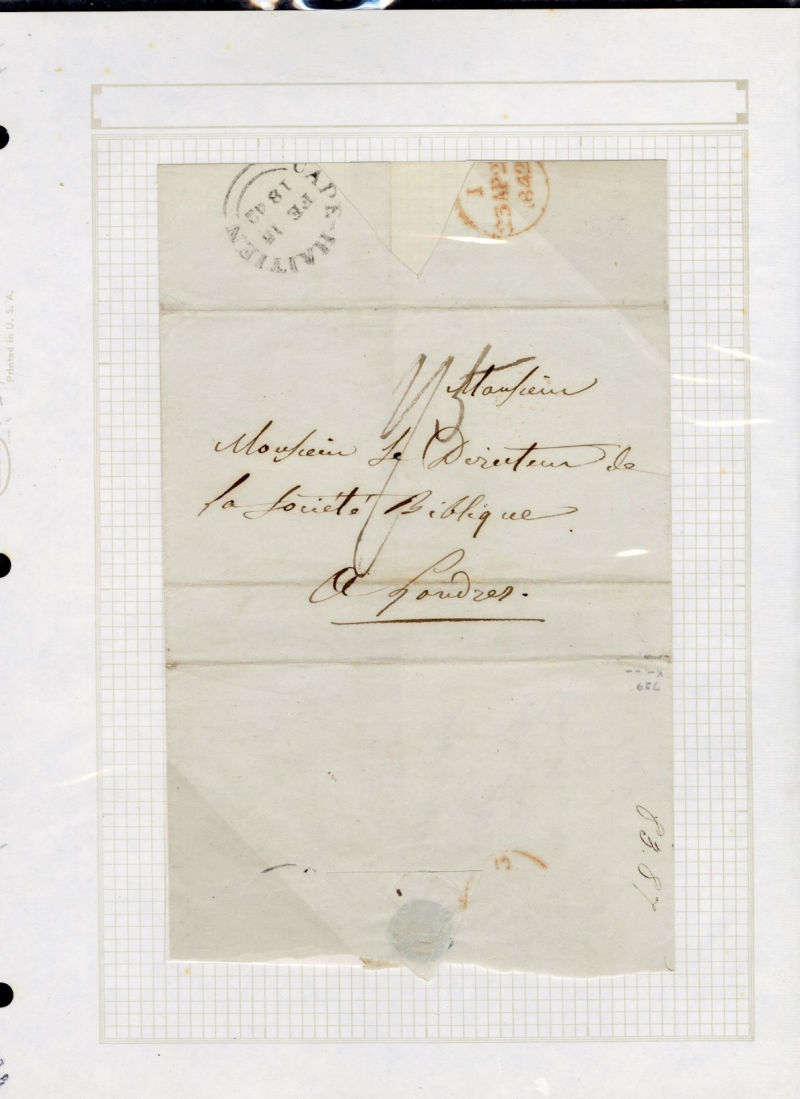 CAPE-HAITIEN
FE 15
1842
1
23 AP 2
1842
Monsieur
Monsieur Le Directeur de
la Société Biblique
A Londres.
729
Printed in U. S. A.